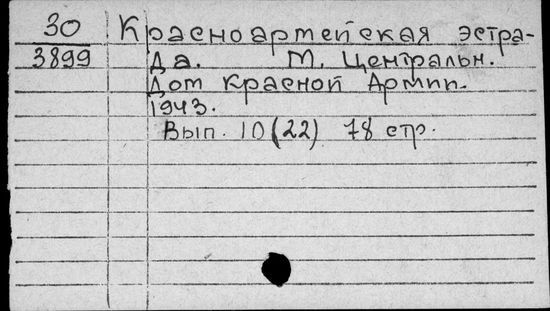 30 Красноармейская эстра-
3899 да. М. Центральн.
Дом Красной Армии.
1943.
Вып. 10(22) 78 стр.